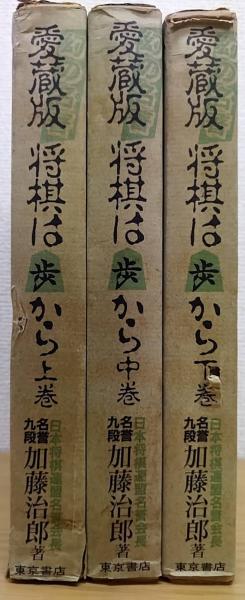 愛蔵版 将棋は歩から 上巻
日本将棋連盟名誉会長
名誉九段 加藤治郎 著
東京書店
愛蔵版 将棋は歩から 中巻
日本将棋連盟名誉会長
名誉九段 加藤治郎 著
東京書店
愛蔵版 将棋は歩から 下巻
日本将棋連盟名誉会長
名誉九段 加藤治郎 著
東京書店